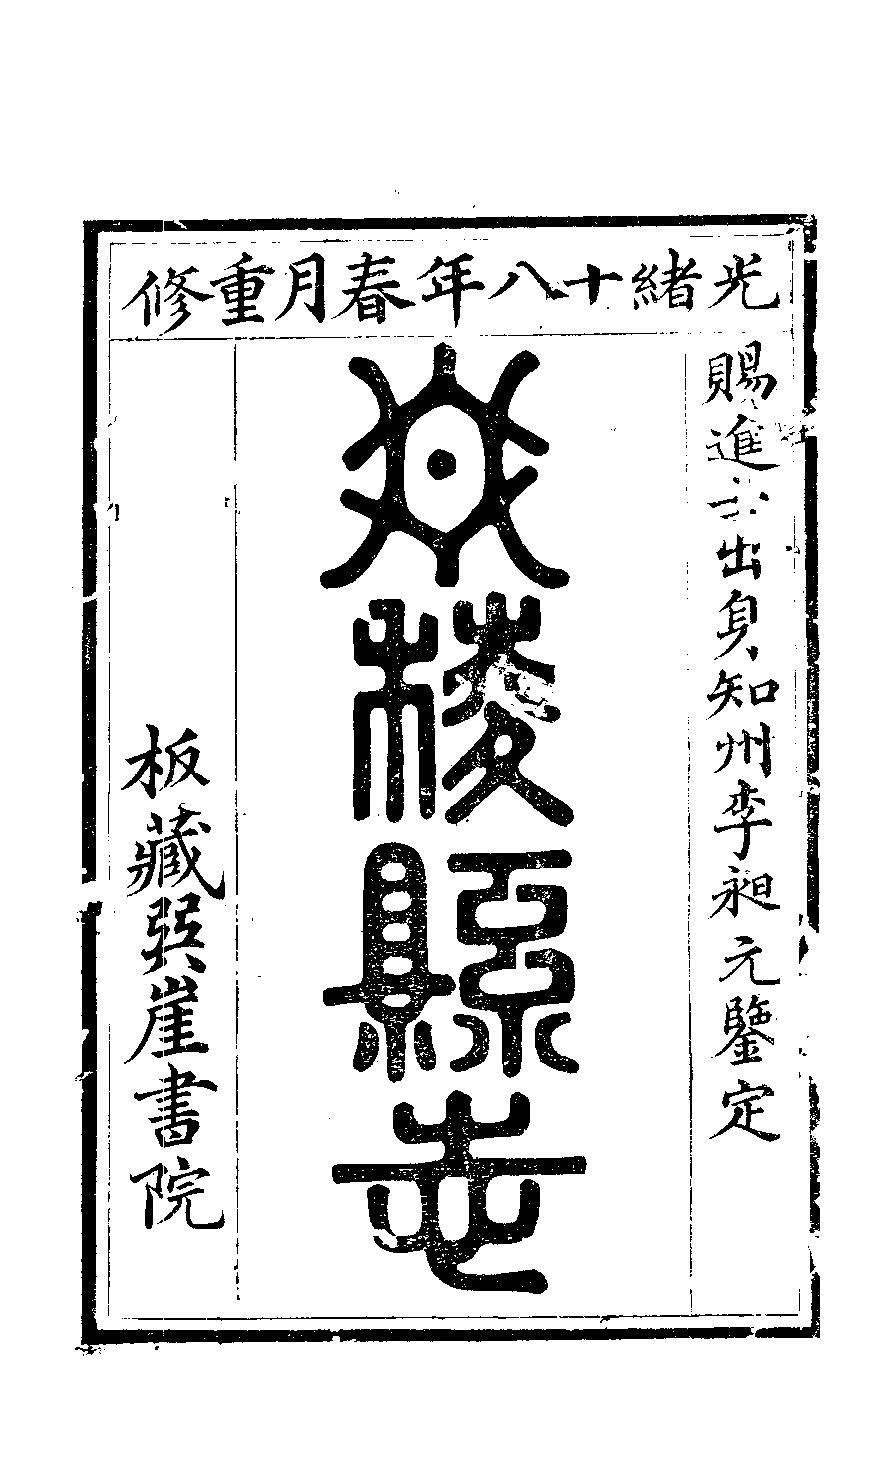 光緒十八年春月重修
賜進士出身知州李昶元鑒定
丹稜縣志
板藏巽崖書院